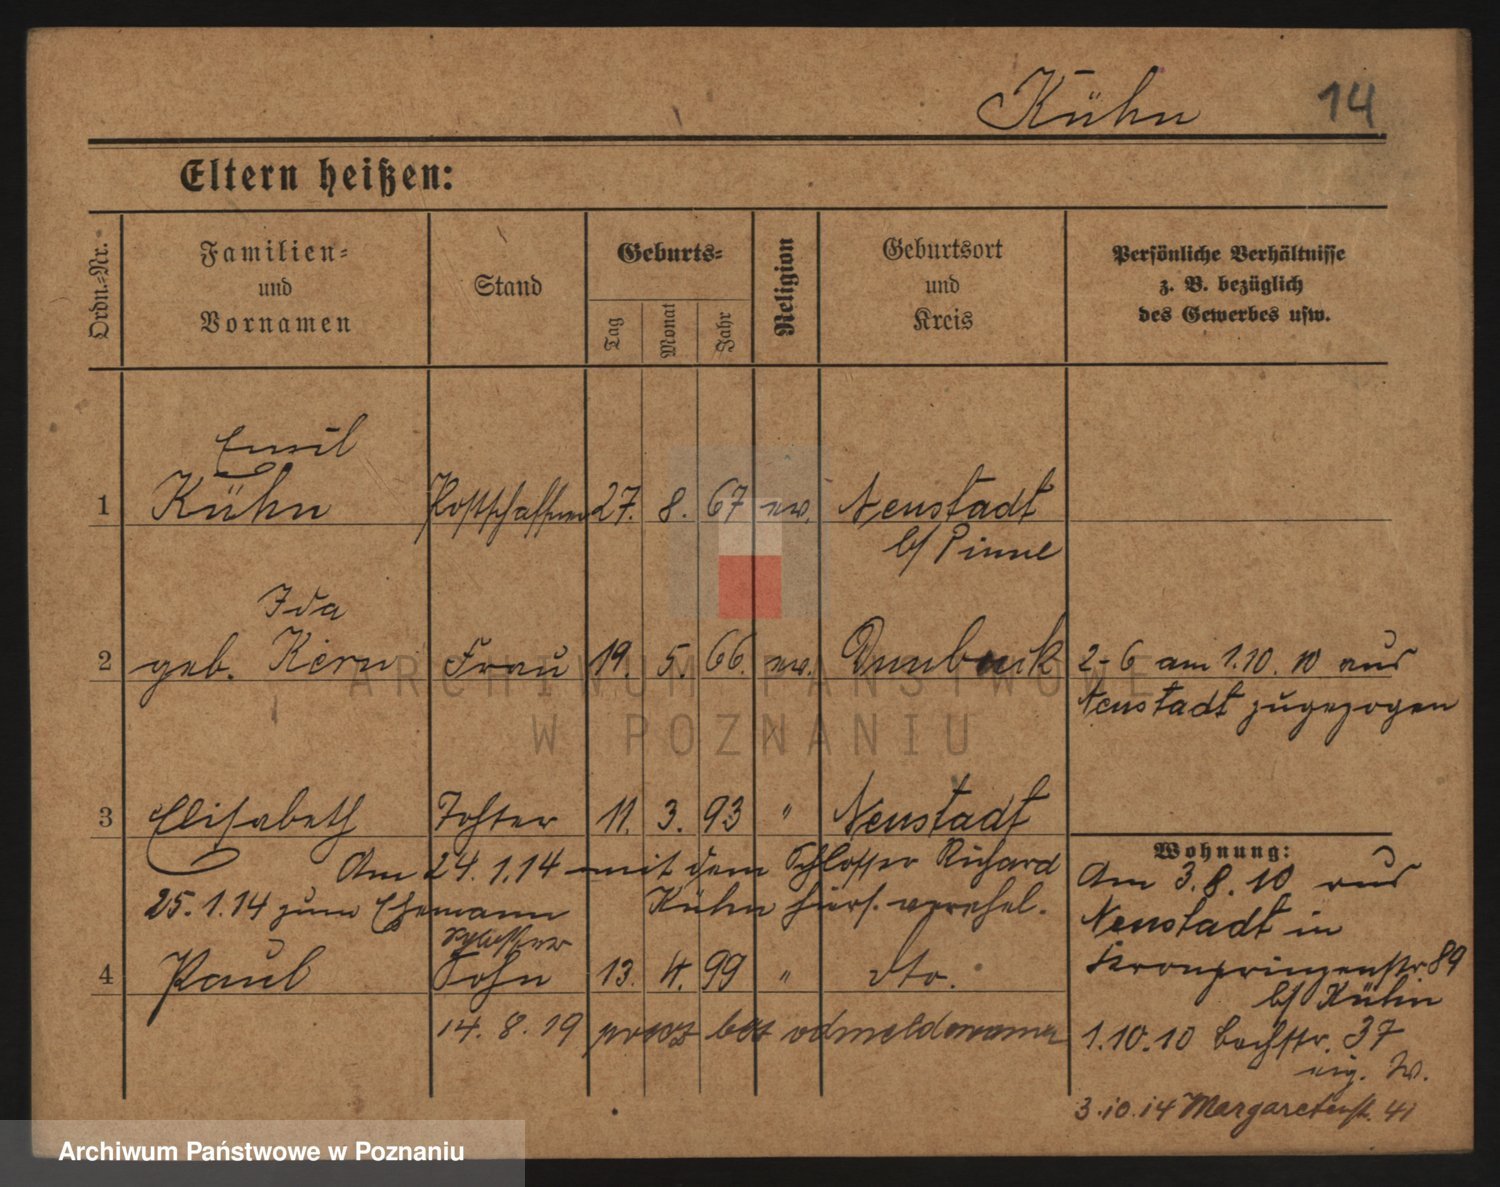 Kühn 14
Eltern heißen:
Ordn.=Nr.
Familien=
und
Vornamen
Stand
Geburts=
Tag
Monat
Jahr
Religion
Geburtsort
und
Kreis
Persönliche Verhältnisse
z. B. bezüglich
des Gewerbes usw.
Emil
1 Kühn Postschaffner 27. 8. 67 ev. Neustadt
b/ Pinne
Ida
2 geb. Kern Frau 19. 5. 66. ev. 2-6 am 1.10. 10 aus
Neustadt zugezogen
3 Elisabeth Tohter 11. 3. 93 " Neustadt
Am 24. 1. 14 mit dem Schlosser Richard
25. 1. 14 zum Ehemann Kühn hiers. verehel.
Schlosser
4 Paul Sohn 13. 4. 99 " dto.
14. 8. 19
Wohnung:
Am 3. 8. 10 aus
Neustadt in
Kronprinzenstr 89
b/ Kühn
1. 10. 10 Bachstr. 37
eig. W.
3. 10. 14 Margaretenst. 41
ARCHIWUM PAŃSTWOWE
W POZNANIU
Archiwum Państwowe w Poznaniu